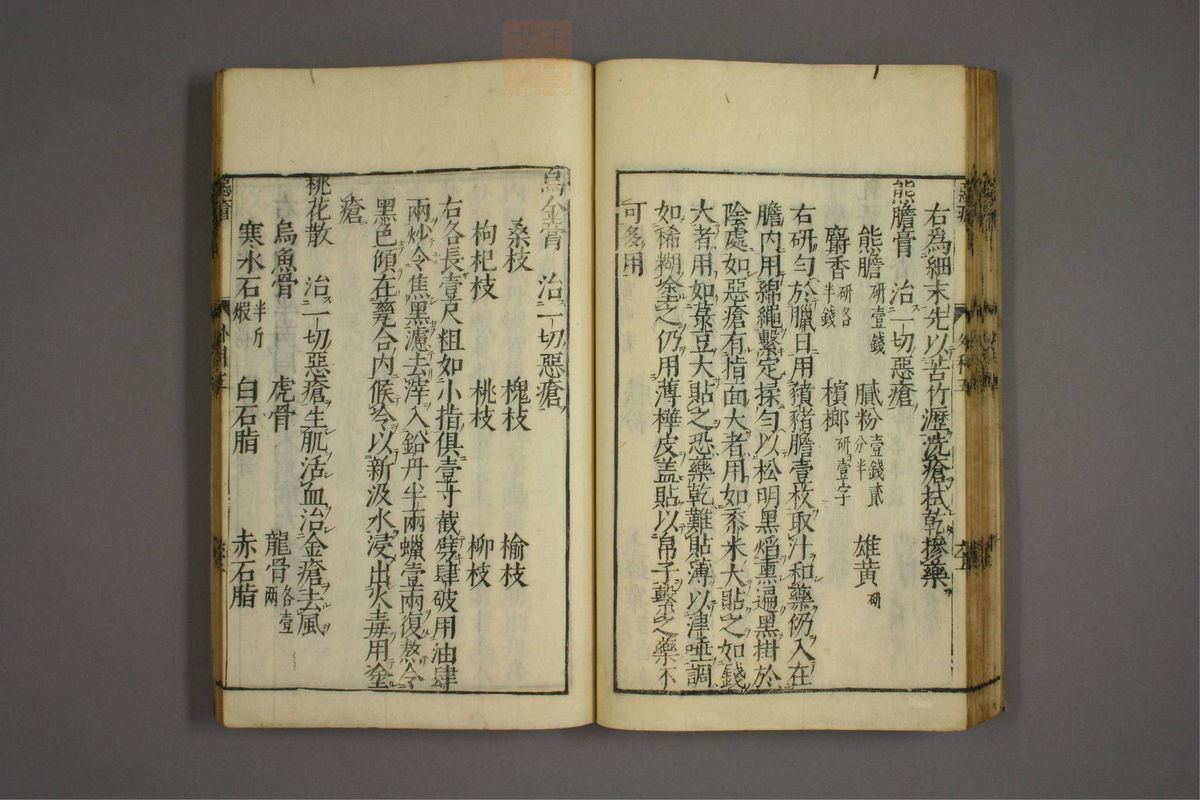 右爲細末先以苦竹瀝洗瘡拭乾摻藥
熊膽膏 治一切惡瘡
熊膽研壹錢 膩粉壹錢貳分半 雄黃研
麝香研各半錢 檳榔研壹字
右研勻於臘日用豶豬膽壹枚取汁和藥仍入在
膽內用綿繩繫定揉勻以松明黑焰熏遍黑掛於
陰處如惡瘡有指面大者用如黍米大貼之如錢
大者用如菉豆大貼之恐藥乾難貼薄以津唾調
如稀糊塗之仍用薄樺皮蓋貼以帛子繫之藥不
可多用
烏金膏 治一切惡瘡
桑枝 槐枝 榆枝
枸杞枝 桃枝 柳枝
右各長壹尺粗如小指俱壹寸截劈肆破用油肆
兩炒令焦黑濾去滓入鉛丹半兩蠟壹兩復熬令
黑色傾在甆合內候冷以新汲水浸出火毒用塗
瘡
桃花散 治一切惡瘡生肌活血治金瘡去風
烏魚骨 虎骨 龍骨各壹兩
寒水石半斤煆 白石脂 赤石脂
惡瘡